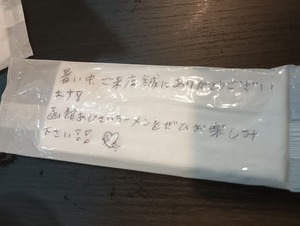 暑い中、ご来店誠にありがとうござい
ます!!
函館あじさいラーメンをぜひお楽しみ
下さい!!